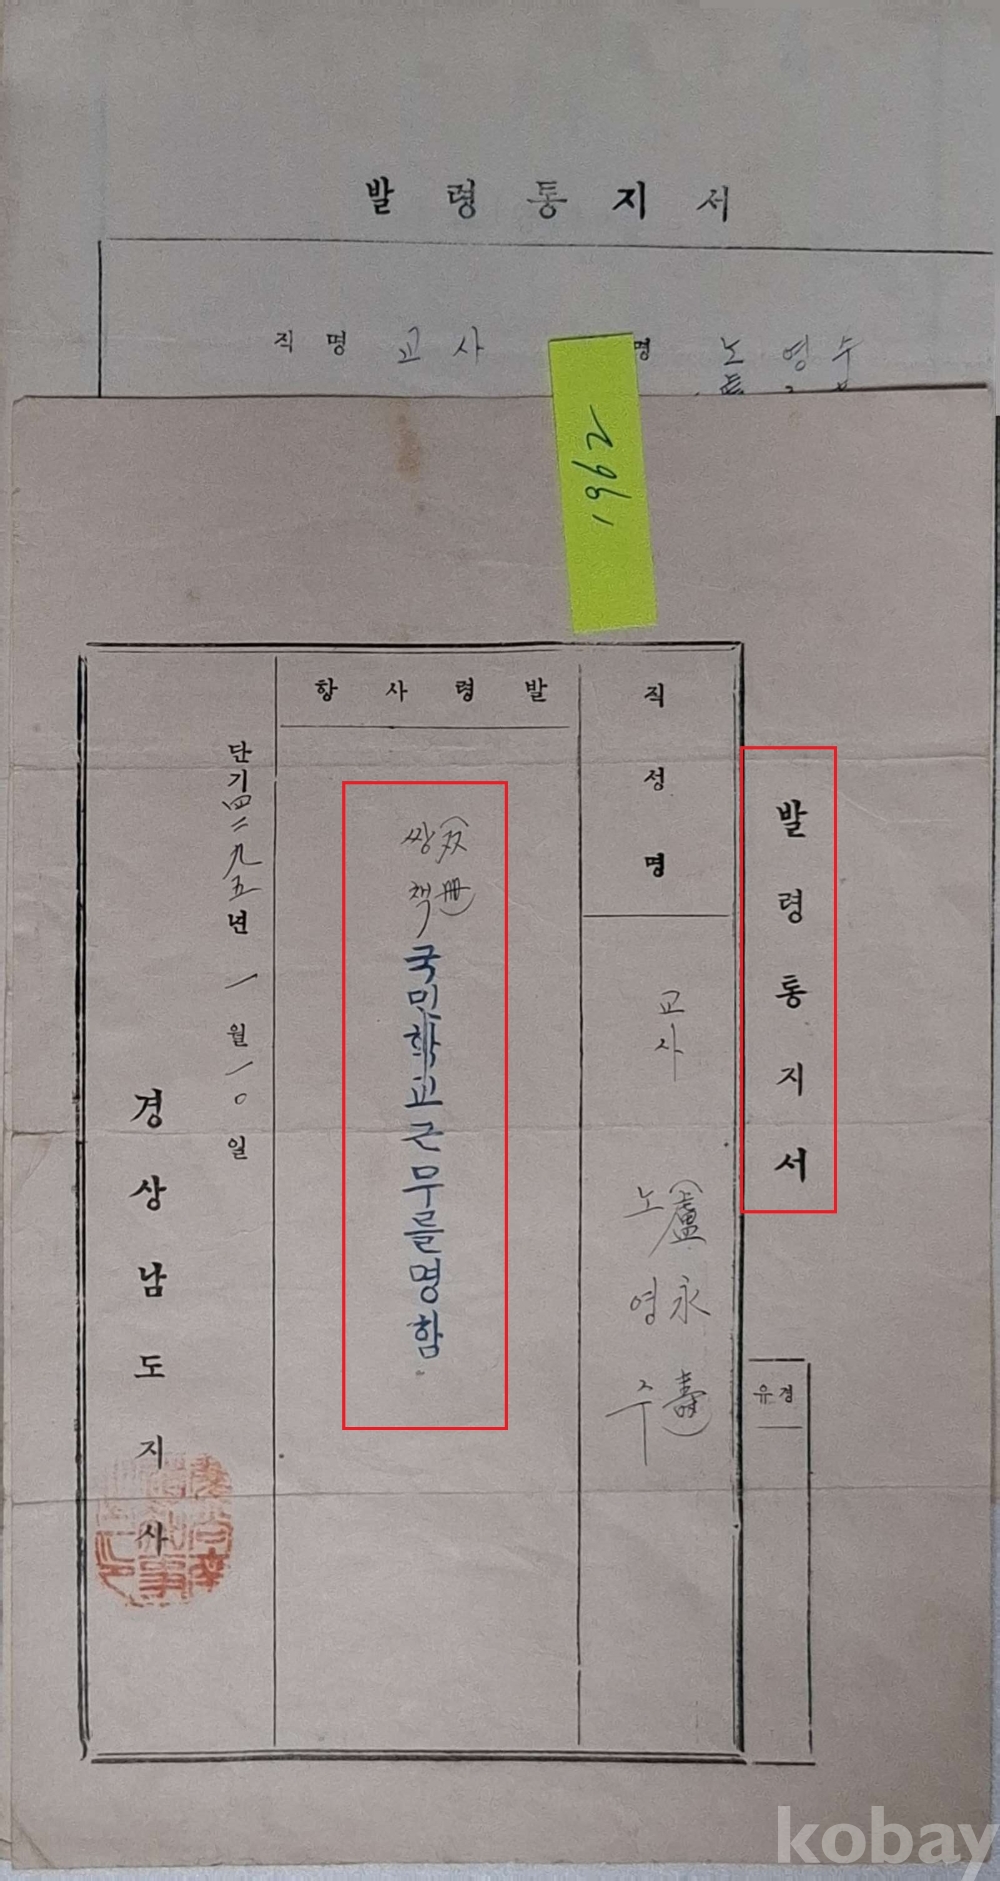 발령통지서
직명 교사 명 노영수
1962
발령통지서
유경
직성명
교사 노영수(盧永壽)
발령사항
쌍책(双冊)국민학교근무를명함.
단기四二九五년 一월 一〇일
경상남도지사
kobay